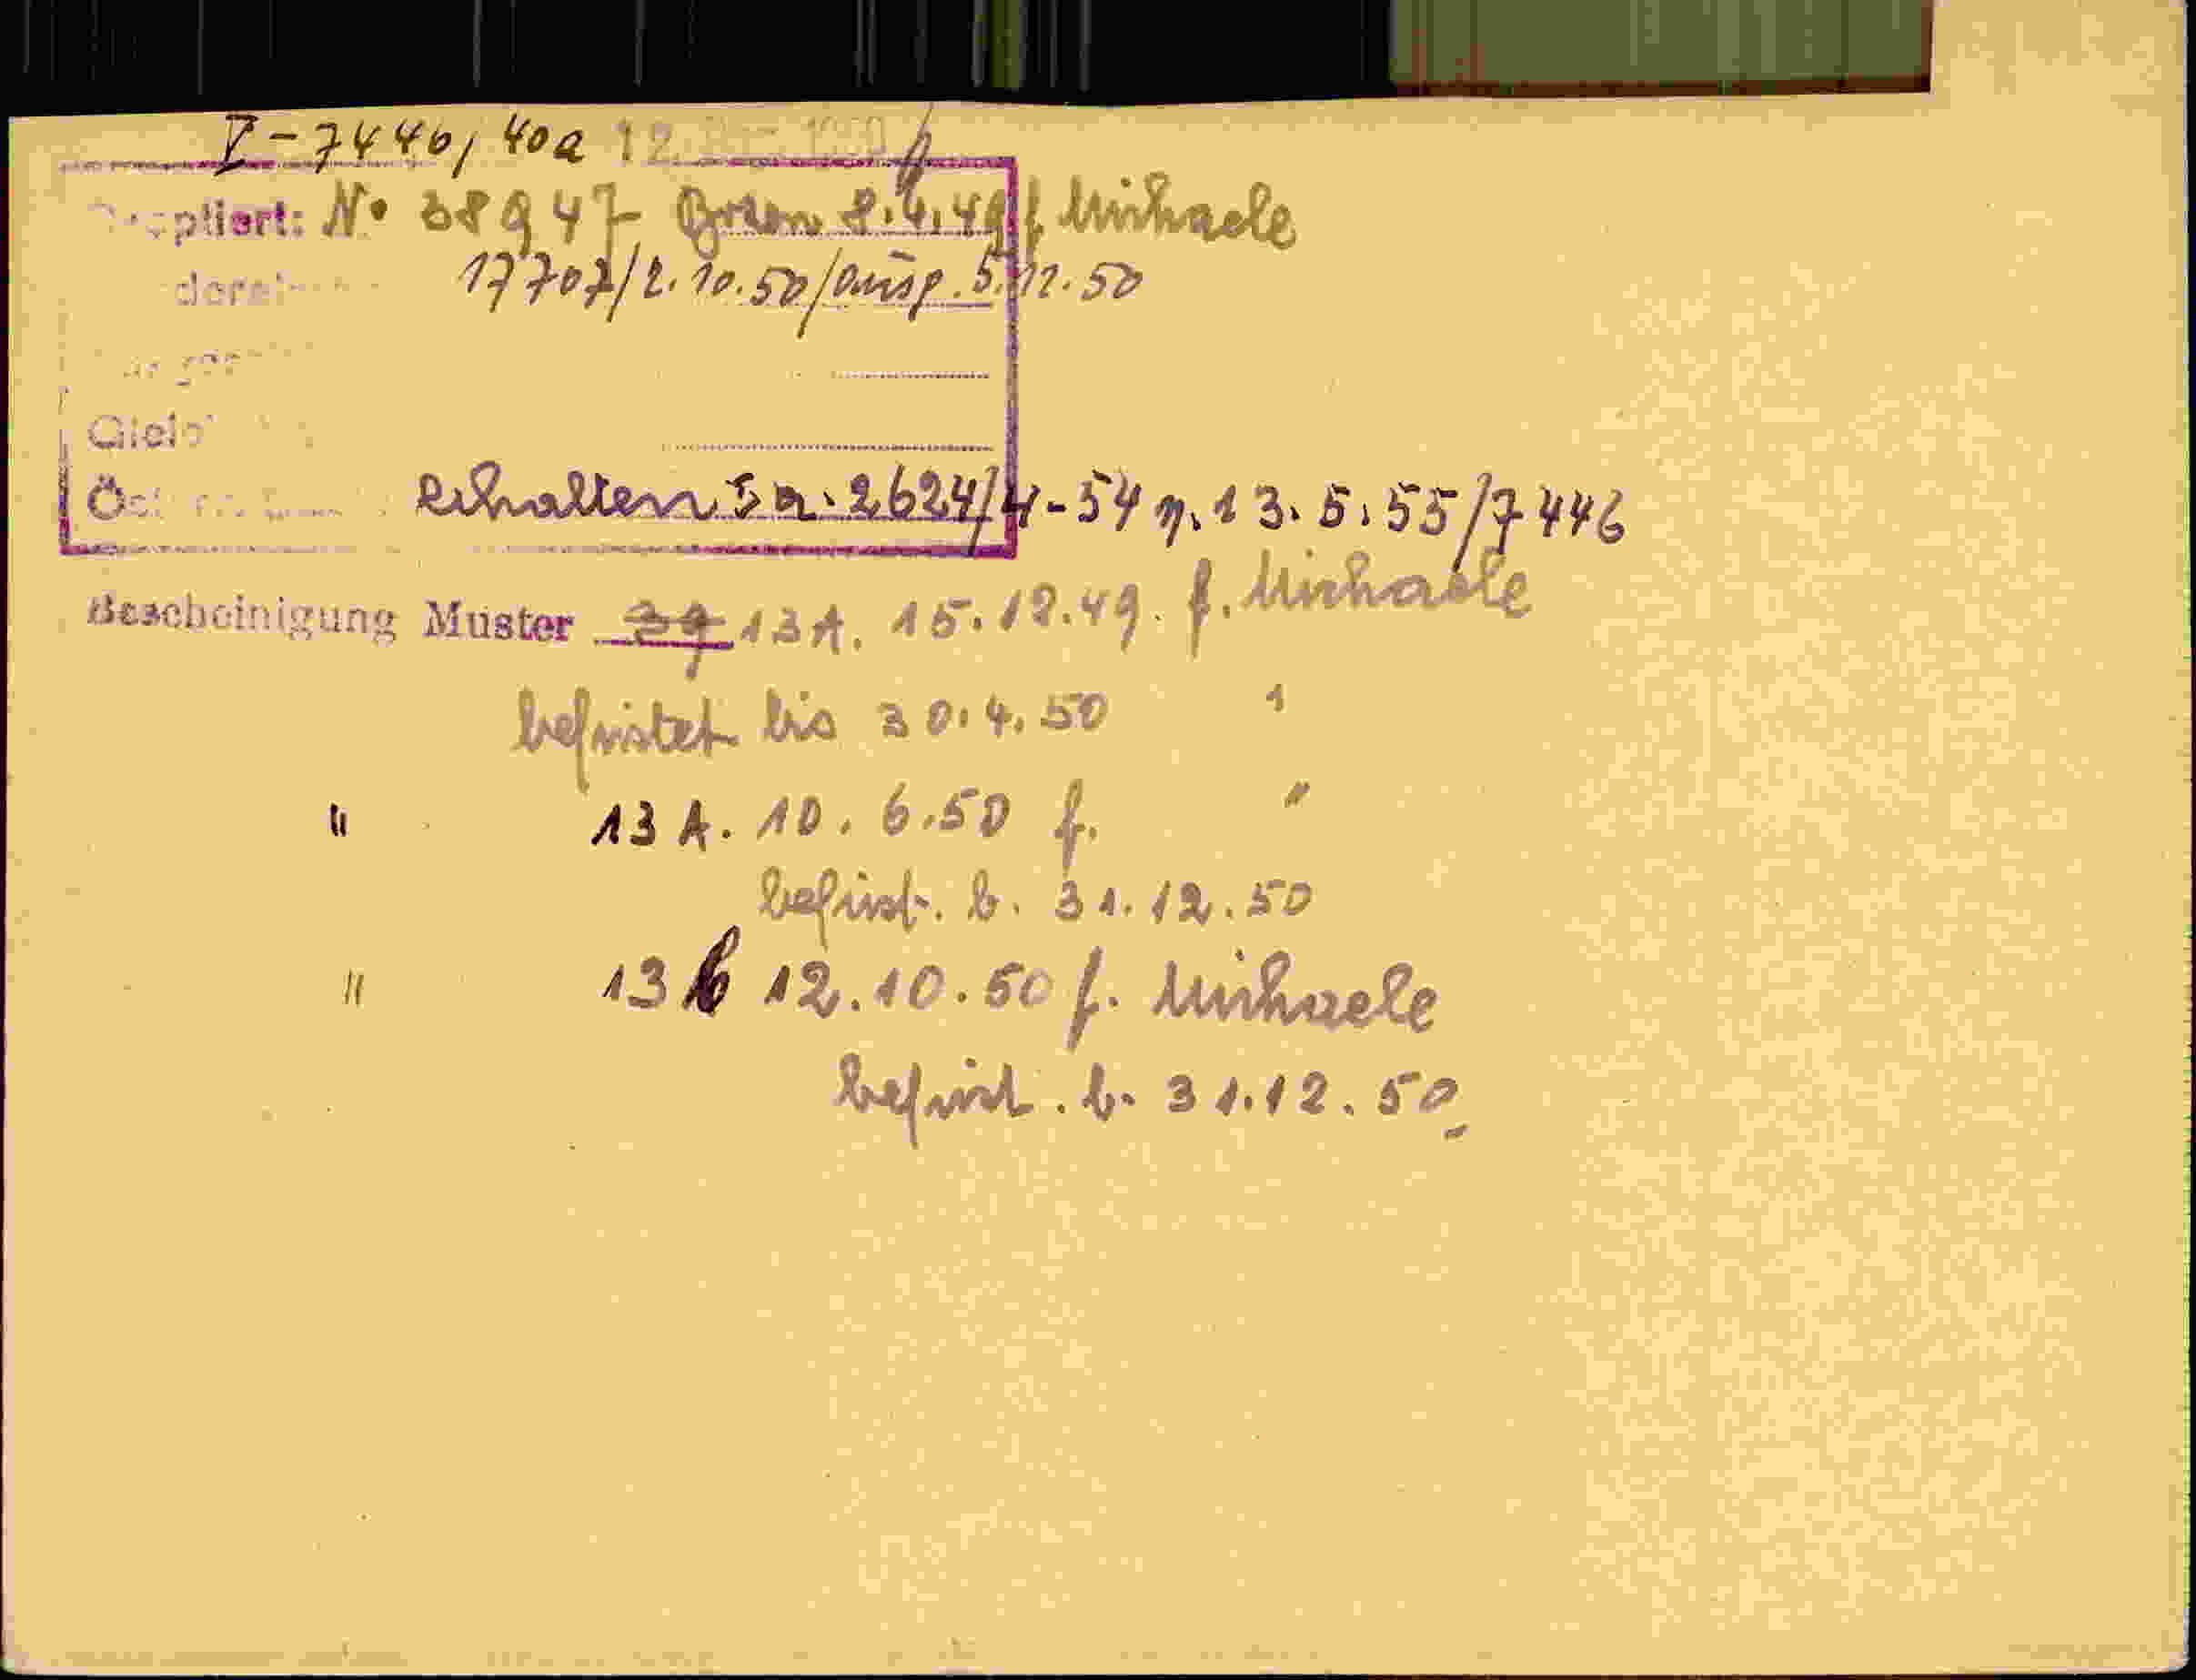 V-7446, 40a 12.
Reoptiert: No 38947 Bozen 8.4.49 f Michaele
17707/2.10.50/ausg. 5.12.50
erhalten Ia. 2624/4-54 v. 13.5.55/7446
Bescheinigung Muster 39 13A. 15.12.49. f. Michaele
befristet bis 30.4.50 "
" 13 A. 10. 6.50 f. "
befrist. b. 31.12.50
" 13 b 12.10.50 f. Michaele
befrist. b. 31.12.50